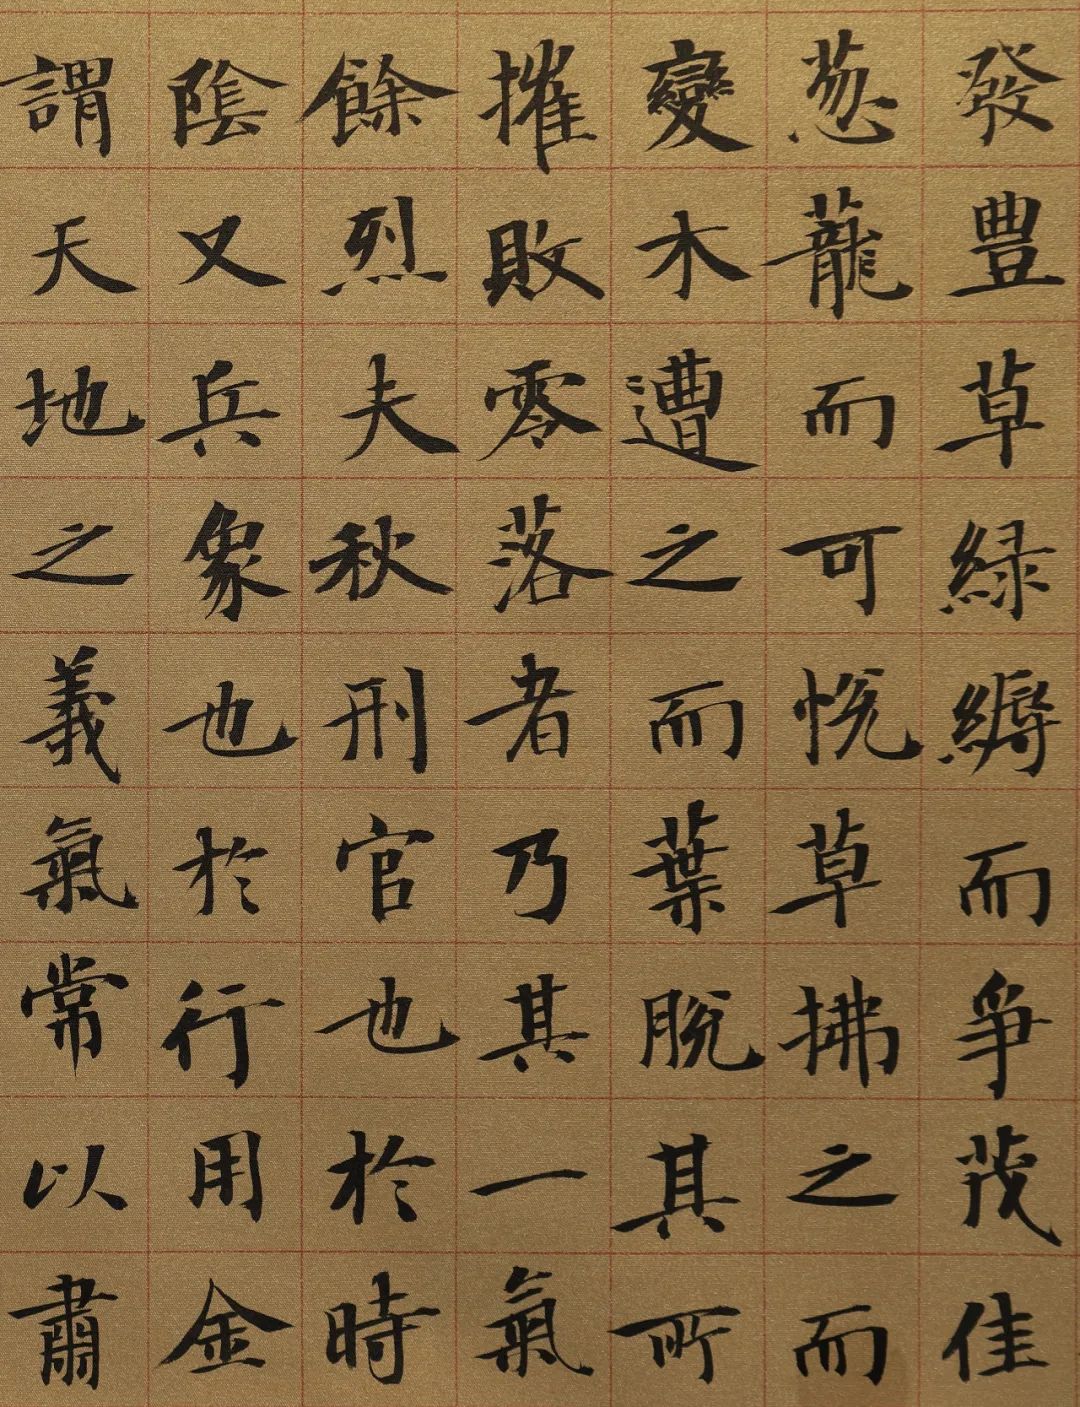 發豐草緑縟而爭茂佳
葱蘢而可悅草拂之而
變木遭之而葉脫其所
摧敗零落者乃其一氣
餘烈夫秋刑官也於時
陰又兵象也於行用金
謂天地之義氣常以肅